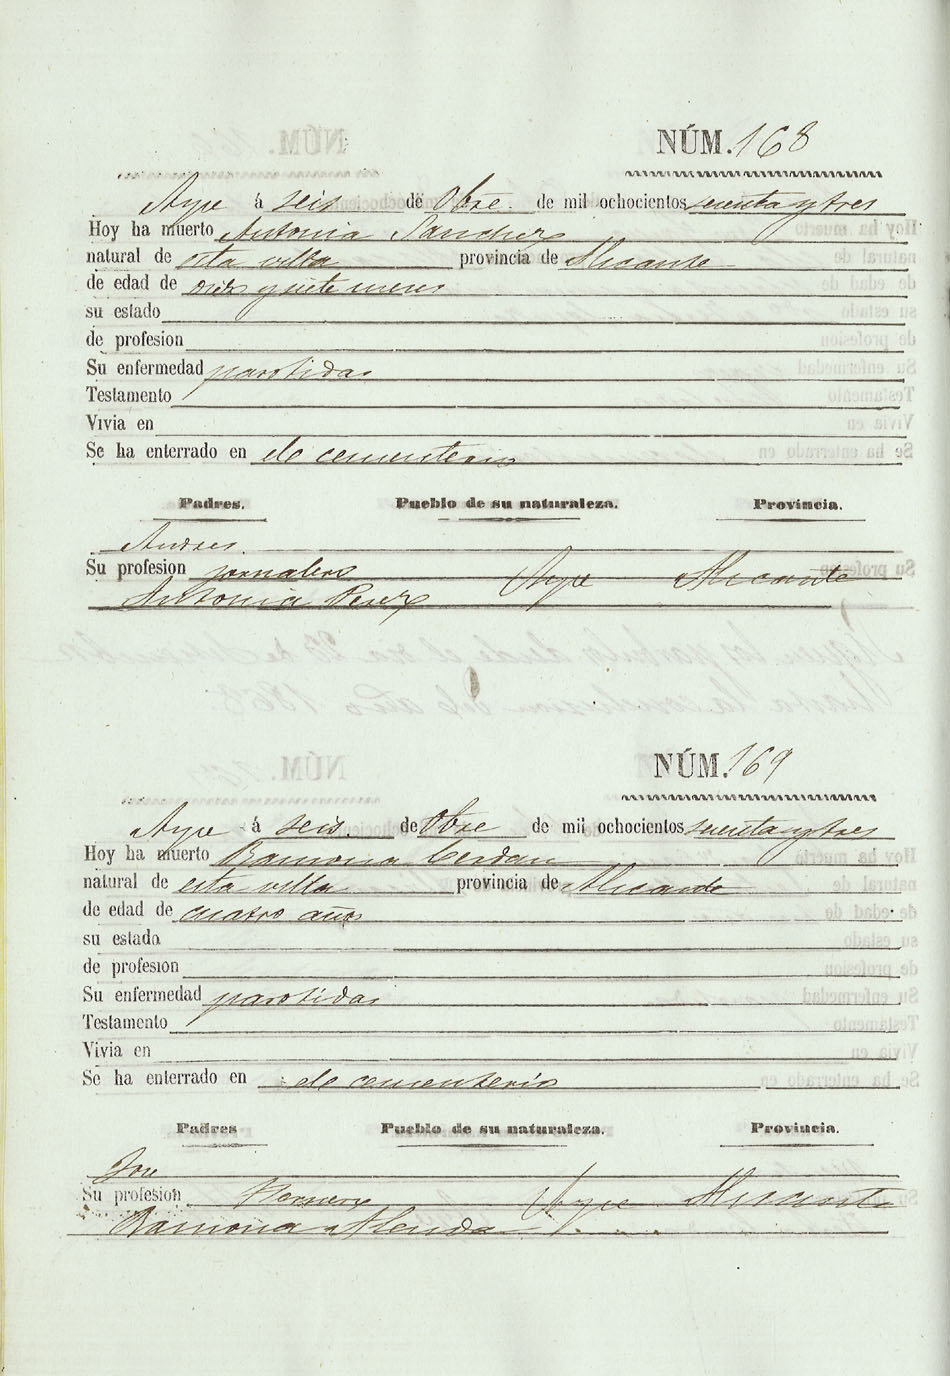 NÚM. 168
Aspe á seis de 8bre. de mil ochocientos sesenta y tres
Hoy ha muerto Antonia Sanchez
natural de esta villa provincia de Alicante
de edad de diez y siete meses
su estado
de profesion
Su enfermedad parotidas
Testamento
Vivia en
Se ha enterrado en el cementerio
Padres. Pueblo de su naturaleza. Provincia.
Andres.
Su profesion jornalero Aspe Alicante
Antonia Perez
NÚM. 169
Aspe á seis. de 8bre de mil ochocientos sesenta y tres
Hoy ha muerto Ramona Cerdan
natural de esta villa provincia de Alicante
de edad de cuatro años
su estado
de profesion
Su enfermedad parotidas
Testamento
Vivia en
Se ha enterrado en el cementerio
Padres Pueblo de su naturaleza. Provincia.
Jose
Su profesion Aspe Alicante
Ramona Alenda